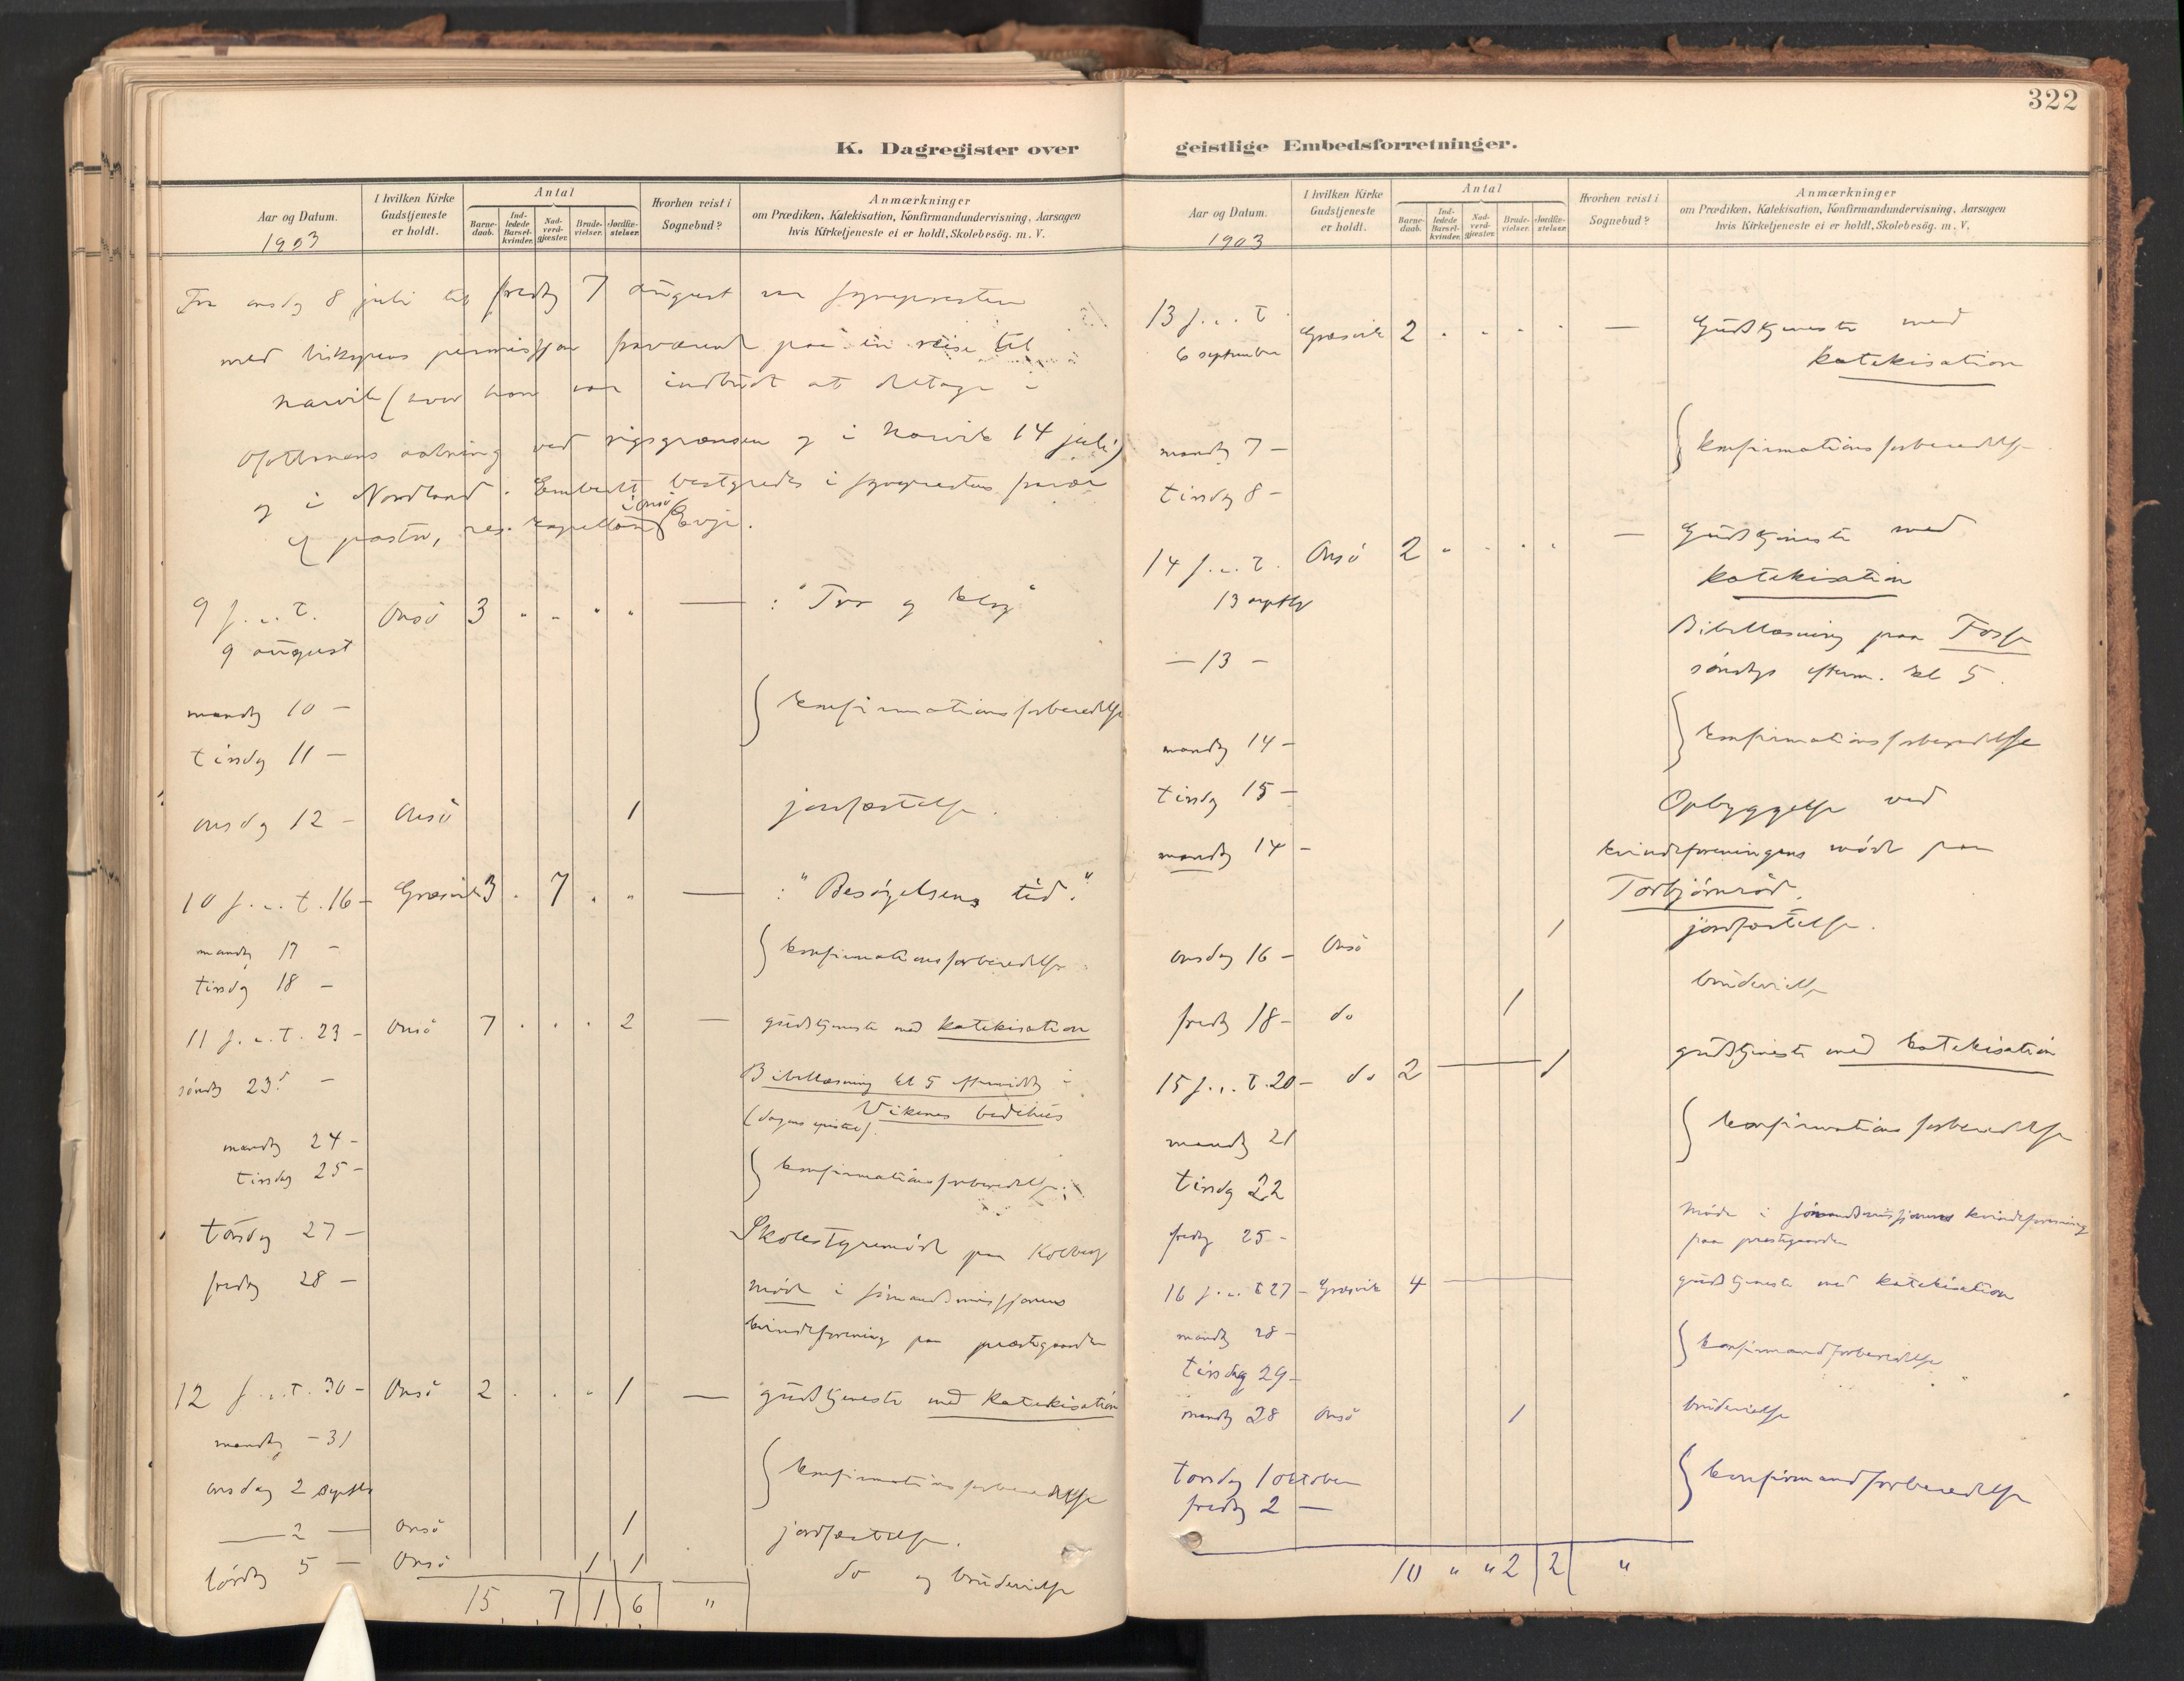 322
K. Dagregister over geistlige Embedsforretninger.
Aar og Datum. 1903
I hvilken Kirke Gudstjeneste er holdt.
Antal
Barnedaab.
Indledede Barselkvinder.
Nadverdgjæster.
Brudevielser.
Jordfæstelser.
Hvorhen reist i Sognebud?
Anmærkninger
om Prædiken, Katekisation, Konfirmandundervisning, Aarsagen
hvis Kirketjeneste ei er holdt, Skolebesög. m. V.
Fra onsdag 8 juli til fredag 7 august var sognepresten
med biskopens permission fraværende paa en reise til
Narvik (hvor han var indbudt at deltage i
Ofotbanens aabning ved rigsgrænsen og i Narvik 14 juli)
og i Nordland. Embedet bestyredes i sogneprestens fravær
af pastor, res. kapellan i Onsö Evje.
9 s. e. t. Onsö 3 " " " " — : "Tro og
9 august
mandag 10 — konfirmationsforberedelse
tirsdag 11 —
onsdag 12 — Onsö 1 jordfæstelse.
10 s. e. t. 16 — Græsvik 3 . 7 " " — : "Besögelsens tid."
mandag 17 — konfirmationsforberedelse.
tirsdag 18 —
11 s. e. t. 23 — Onsö 7 . . . 2 — gudstjeneste med katekisation
söndag 23 — Bibellæsning kl 5 eftermiddag i
Vikenes bedehus
(dagens epistel).
mandag 24 —
tirsdag 25 — konfirmationsforberedelse.
torsdag 27 — Skolestyremöde paa Kolberg
fredag 28 — Möde i sömandsmissjonens
kvindeforening paa præstegaarden
12 s. e. t. 30 — Onsö 2 . . " 1 — gudstjeneste med katekisation
mandag — 31
onsdag 2 septbr konfirmationsforberedelse
— 2 — Onsö 1 jordfæstelse.
lördag 5 — Onsö 1 1 do og brudevielse
15 7 1 6 "
Aar og Datum. 1903
I hvilken Kirke Gudstjeneste er holdt.
Antal
Barnedaab.
Indledede Barselkvinder.
Nadverdgjæster.
Brudevielser.
Jordfæstelser.
Hvorhen reist i Sognebud?
Anmærkninger
om Prædiken, Katekisation, Konfirmandundervisning, Aarsagen
hvis Kirketjeneste ei er holdt, Skolebesög. m. V.
13 s. e. t. Græsvik 2 . . . . — Gudstjeneste med
6 september katekisation
mandag 7 — konfirmationsforberedelse
tirsdag 8 —
14 s. e. t. Onsö 2 " . . . — Gudstjeneste med
13 septbr katekisation
— 13 — Bibellæsning paa Fosse
söndags efterm. kl 5.
mandag 14 — konfirmationsforberedelse
tirsdag 15 —
mandag 14 — Opbyggelse ved
kvindeforeningens möde paa
Torbjörnröd.
onsdag 16 — Onsö 1 jordfæstelse.
fredag 18 — do 1 brudevielse
15 s. e. t. 20 — do 2 — 1 gudstjeneste med katekisation
mandag 21 konfirmationsforberedelse
tirsdag 22
fredag 25 — Möde i sömandsmissjonens kvindeforening
paa præstegaarden
16 s. e. t 27 — Græsvik 4 — gudstjeneste med katekisation
mandag 28 — konfirmandforberedelse
tirsdag 29 —
mandag 28 Onsö 1 brudevielse
torsdag 1 october konfirmandforberedelse
fredag 2 —
10 " " 2 2 "